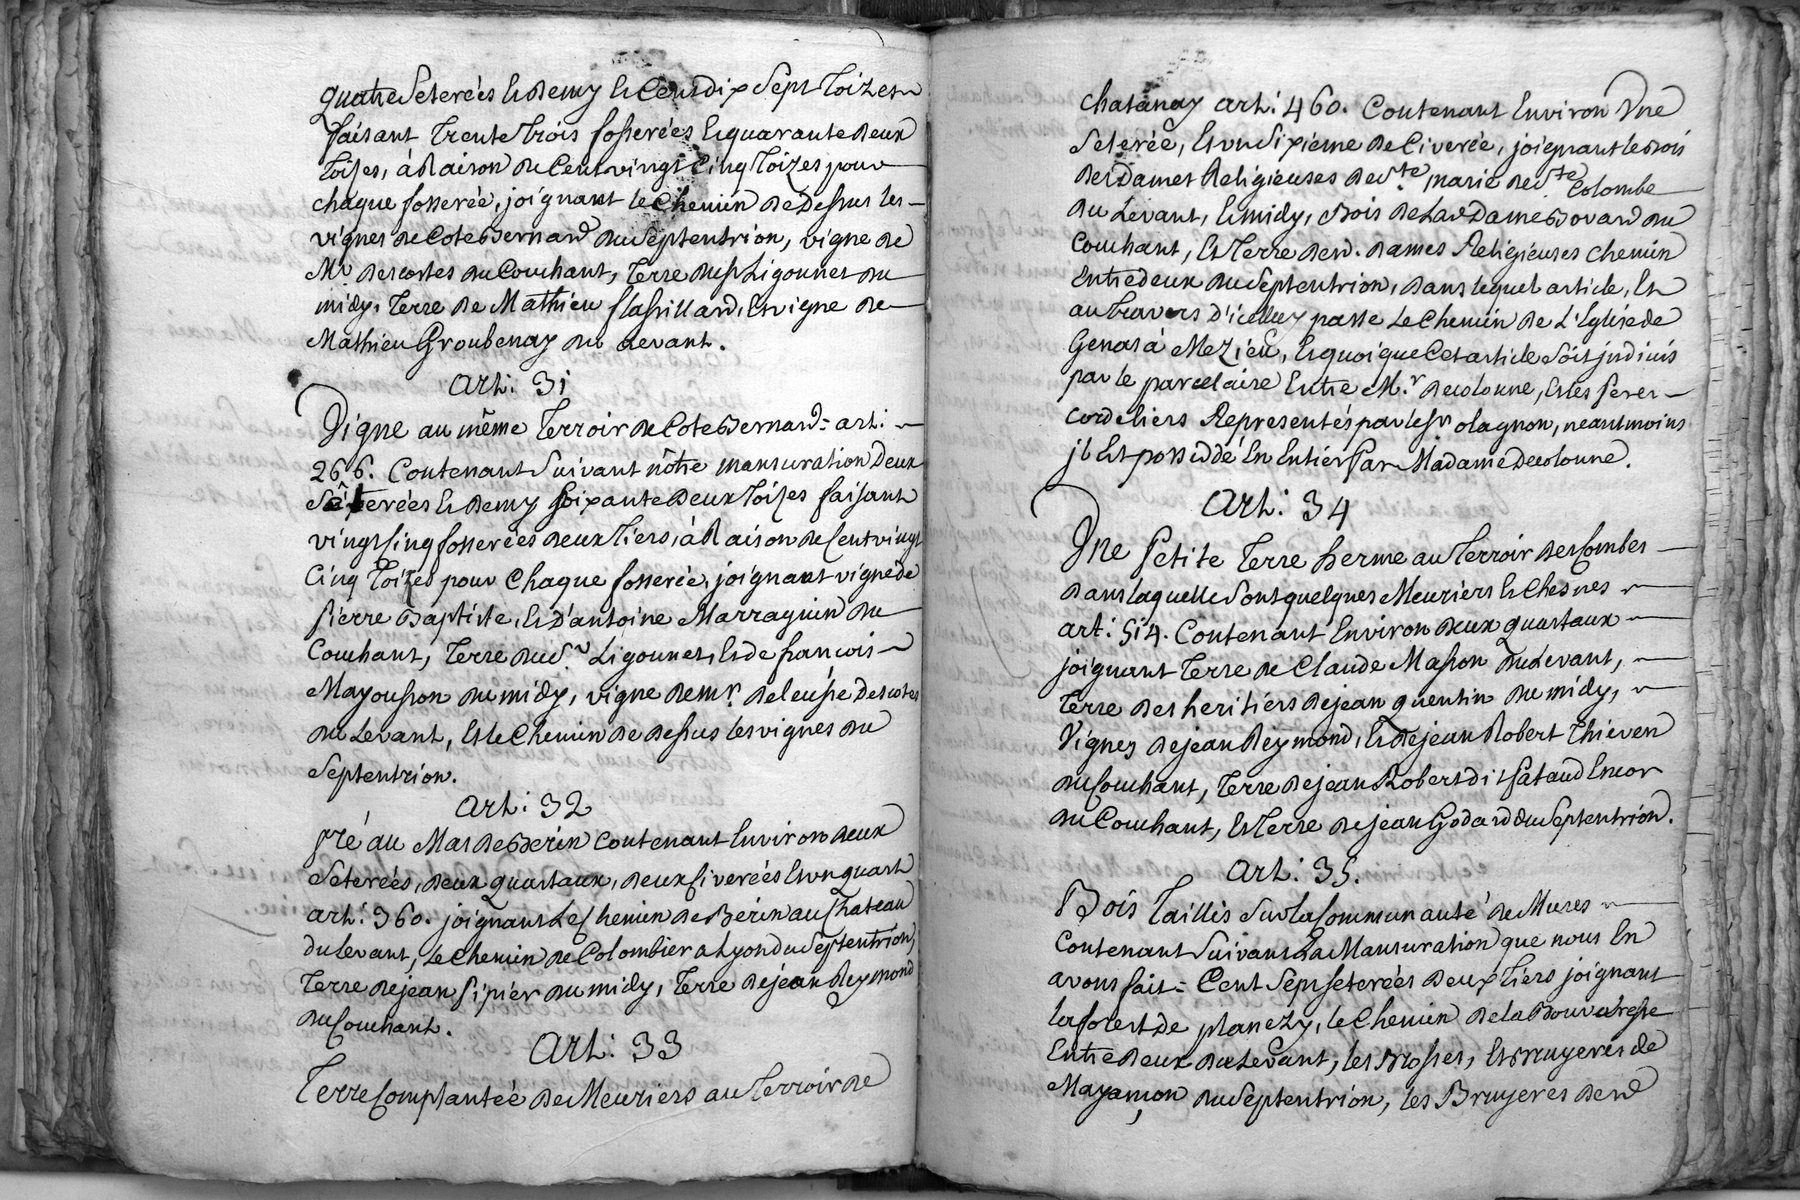 quatreSeterées et demy et Cent dix Sept Toizes
faisant Trente Trois fosserées et quarante deux
Toises, à Raison de Cent vingt Cinq Toizes pour
chaque fosserée, joignant le Chemin de Dessus les
vignes de Cote Bernard du Septentrion, vigne de
Mr. Descostes du Couchant, Terre du Sr Ligounet du
midy, Terre de Mathieu flassillard, et vigne de
Mathieu Groubenay du Levant.
Art: 31
Vigne au même Terroir de Cote Bernard = art:
266. Contenant Suivant nôtre mansuration Deux
Sêterées et demy Soixante deux Toises faisant
vingt Cinq fosserées deux Tiers, à Raison de Cent vingt
Cinq Toizes pour Chaque fosserée, joignant vigne de
pierre Baptiste, et d'antoine Marraguin du
Couchant, Terre dud. Sr Ligounet, et de francois
Mayousson du midy, vigne de mr. de leuse Descotes
du Levant, et le Chemin de dessus les vignes du
Septentrion.
Art: 32
Pré au Mas de Berin Contenant Environ deux
Seterées, deux quartaux, deux Civerées et un quart
art: 360. joignant Le Chemin de Berin au Chateau
du Levant, Le Chemin de Colombier a Lyon du Septentrion,
Terre de jean Pipier du midy, Terre de jean Reymond
du Couchant.
Art: 33
Terre Complantée de Meuriers au Terroir de
chatanay art: 460. Contenant Environ Une
Seterée, et un Sixieme de Civerée, joignant le bois
des Dames Religieuses de Ste. marie de Ste Colombe
du Levant, et midy, Bois de Lad. Dame Bovard du
Couchant, et Terre desd. dames Religieuses chemin
Entredeux du Septentrion, dans lequel article, et
au travers d'icelluy passe Le Chemin de L'Eglise de
Genas à Mezieu, et quoique Cet article Soit jndivis
par le parcelaire Entre Mr. decolonne, et les Peres
cordeliers Representés par le Sr olagnon, neantmoins
jl Est possedé En Entier Par Madame Decolonne.
Art: 34
Une Petite Terre herme au Terroir des Combes
dans laquelle Sont quelques Meuriers et Chesnes
art: 514. Contenant Environ deux quartaux
joignant Terre de Claude Masson du Levant,
Terre des heritiérs de jean quentin du midy,
Vignes de jean Reymond, et de jean Robert Thieven
du Couchant, Terre de jean Robert dit Pataud Encor
du Couchant, et Terre de jean Godard du Septentrion.
Art: 35.
Bois Taillis Sur la Communauté de Mures
Contenant Suivant La Mansuration que nous En
avons fait = Cent Sept Seterées deux Tiérs joignant
la forest de planezy, le Chemin de la Bouvaresse
Entre deux du Levant, les Brosses, et Bruyeres de
Mayamon du Septentrion, les Bruyeres de